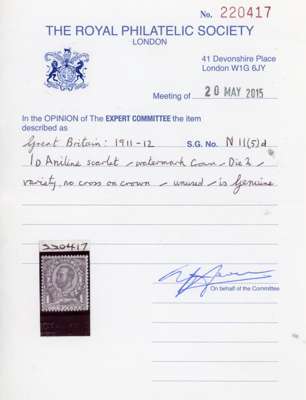 No. 220417
THE ROYAL PHILATELIC SOCIETY
LONDON
41 Devonshire Place
London W1G 6JY
Meeting of 20 MAY 2015
In the OPINION of The EXPERT COMMITTEE the item
described as
Great Britain: 1911-12 S.G. No. N11(5)d
1D Aniline scarlet - watermark Crown - Die 2 -
variety, no cross on crown - unused - is Genuine
220417
On behalf of the Committee